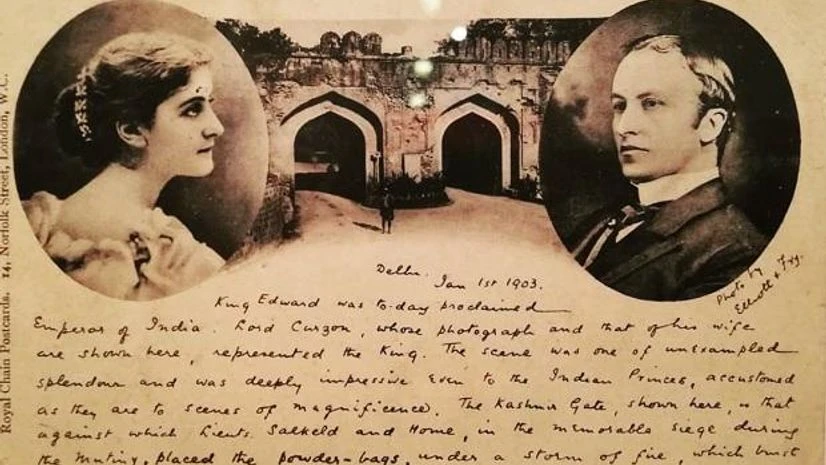 Royal Chain Postcards. 14, Norfolk Street, London, W.C.
Photo by
Elliott & Fry.
Delhi.
Jan 1st 1903.
King Edward was to-day proclaimed
Emperor of India. Lord Curzon, whose photograph and that of his wife
are shown here, represented the King. The scene was one of unexampled
splendour and was deeply impressive even to the Indian Princes, accustomed
as they are to scenes of magnificence. The Kashmir Gate, shown here, is that
against which Lieuts. Salkeld and Home, in the memorable siege during
the Mutiny, placed the powder-bags, under a storm of fire, which burst